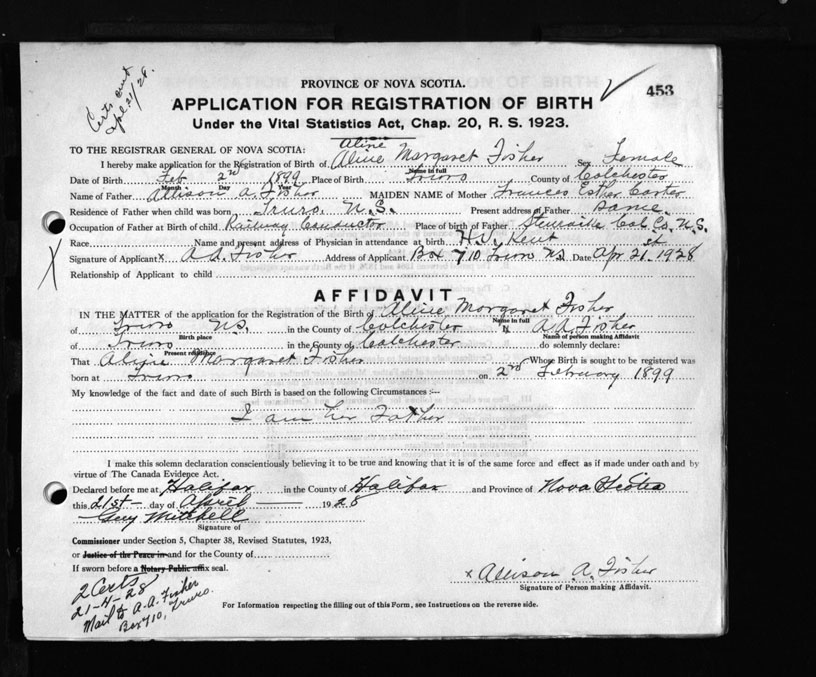 Certs sent
Apl 21/28.
453
PROVINCE OF NOVA SCOTIA.
APPLICATION FOR REGISTRATION OF BIRTH
Under the Vital Statistics Act, Chap. 20, R. S. 1923.
TO THE REGISTRAR GENERAL OF NOVA SCOTIA:
Aline
I hereby make application for the Registration of Birth of Aline Margaret Fisher Sex Female
Name in full
Date of Birth Feb 2nd 1899 Place of Birth Truro County of Colchester
Month Day Year
Name of Father Allison A. Fisher MAIDEN NAME of Mother Frances Esther Carter
Residence of Father when child was born Truro. N.S. Present address of Father Same
Occupation of Father at Birth of child Railway Conductor Place of birth of Father Stewiacke Col. Co. N.S.
Race Name and present address of Physician in attendance at birth H.V. Kent
Signature of Applicant x A.A. Fisher Address of Applicant Box 710 Truro NS Date Apr 21st 1928
Relationship of Applicant to child
AFFIDAVIT
IN THE MATTER of the application for the Registration of the Birth of Aline Margaret Fisher
Name in full
of Truro NS. in the County of Colchester A.A. Fisher
Birth place Name of person making Affidavit
of Truro in the County of Colchester do solemnly declare:
Present residence
That Aline Margaret Fisher Whose Birth is sought to be registered was
born at Truro on 2nd February 1899
My knowledge of the fact and date of such Birth is based on the following Circumstances :—
I am her Father
I make this solemn declaration conscientiously believing it to be true and knowing that it is of the same force and effect as if made under oath and by
virtue of The Canada Evidence Act.
Declared before me at Halifax in the County of Halifax and Province of Nova Scotia
this 21st day of April 1928
Guy Mitchell
Signature of
Commissioner under Section 5, Chapter 38, Revised Statutes, 1923,
or Justice of the Peace in and for the County of
If sworn before a Notary Public affix seal.
x Allison A. Fisher
Signature of Person making Affidavit.
2 Certs
21-4-28
Mail to A.A. Fisher
Box 710, Truro.
For Information respecting the filling out of this Form, see Instructions on the reverse side.